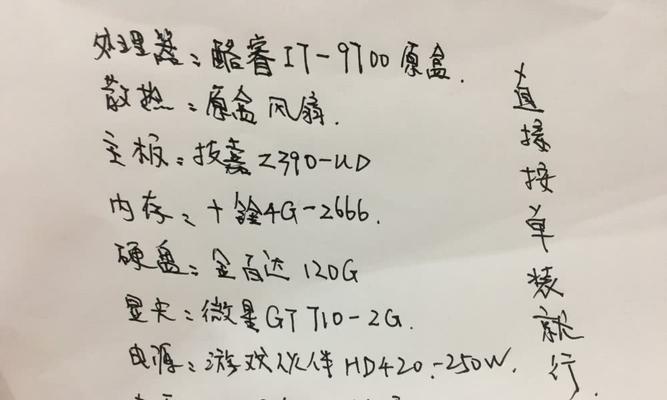 处理器：酷睿I7-9700原盒.
散热：原盒风扇.
主板：技嘉Z390-UD
内存：十铨4G-2666.
硬盘：金百达120G
显卡：微星GT710-2G.
电源：游戏伙伴HD420-250W.
直接按单装就行